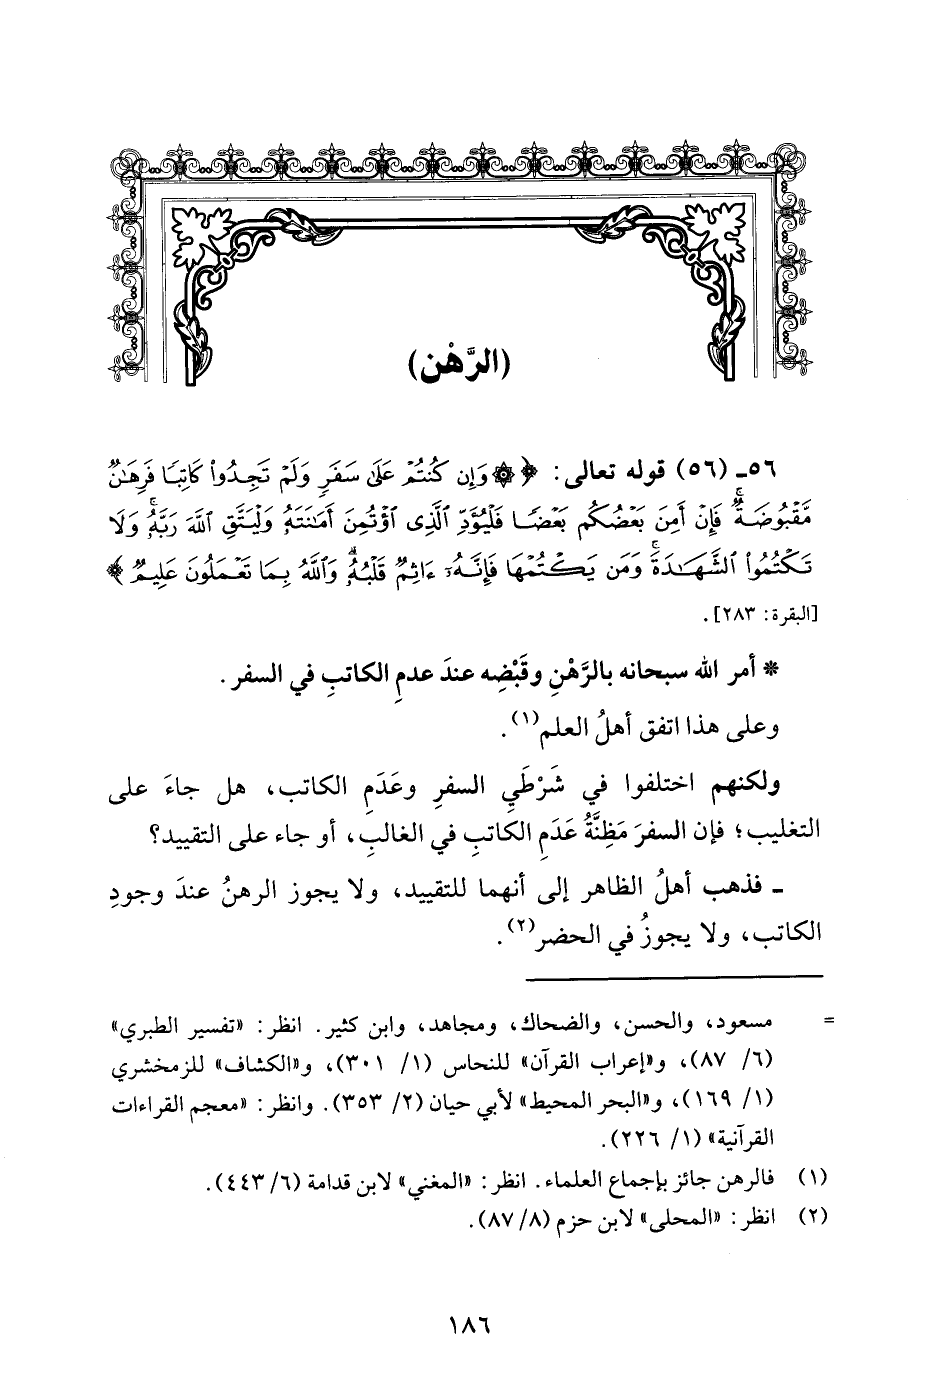 (الرَّهْن)
٥٦ـ (٥٦) قوله تعالى: ﴿ ۞ وَإِن كُنتُمْ عَلَىٰ سَفَرٍ وَلَمْ تَجِدُوا۟ كَاتِبًا فَرِهَـٰنٌ
مَّقْبُوضَةٌ ۖ فَإِنْ أَمِنَ بَعْضُكُم بَعْضًا فَلْيُؤَدِّ ٱلَّذِى ٱؤْتُمِنَ أَمَـٰنَتَهُۥ وَلْيَتَّقِ ٱللَّهَ رَبَّهُۥ ۗ وَلَا
تَكْتُمُوا۟ ٱلشَّهَـٰدَةَ ۚ وَمَن يَكْتُمْهَا فَإِنَّهُۥٓ ءَاثِمٌ قَلْبُهُۥ ۗ وَٱللَّهُ بِمَا تَعْمَلُونَ عَلِيمٌ ﴾
[البقرة: ٢٨٣].
* أمر الله سبحانه بالرَّهْنِ وقَبْضِه عندَ عدمِ الكاتبِ في السفر.
وعلى هذا اتفق أهلُ العلم(١).
ولكنهم اختلفوا في شَرْطَيِ السفرِ وعَدَمِ الكاتب، هل جاءَ على
التغليب؛ فإن السفرَ مَظِنَّةُ عَدَمِ الكاتبِ في الغالبِ، أو جاء على التقييد؟
ـ فذهب أهلُ الظاهر إلى أنهما للتقييد، ولا يجوز الرهنُ عندَ وجودِ
الكاتب، ولا يجوزُ في الحضر(٢).
= مسعود، والحسن، والضحاك، ومجاهد، وابن كثير. انظر: «تفسير الطبري»
(٦/ ٨٧)، و«إعراب القرآن» للنحاس (١/ ٣٠١)، و«الكشاف» للزمخشري
(١/ ١٦٩)، و«البحر المحيط» لأبي حيان (٢/ ٣٥٣). وانظر: «معجم القراءات
القرآنية» (١/ ٢٢٦).
(١) فالرهن جائز بإجماع العلماء. انظر: «المغني» لابن قدامة (٦/ ٤٤٣).
(٢) انظر: «المحلى» لابن حزم (٨/ ٨٧).
١٨٦